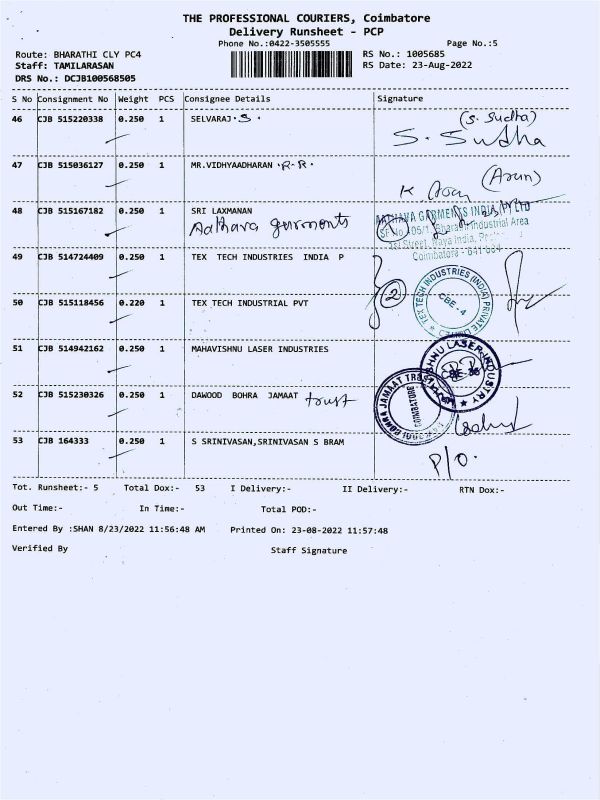 THE PROFESSIONAL COURIERS, Coimbatore
Delivery Runsheet - PCP
Phone No.:0422-3505555 Page No.:5
Route: BHARATHI CLY PC4 RS No.: 1005685
Staff: TAMILARASAN RS Date: 23-Aug-2022
DRS No.: DCJB100568505
S No Consignment No Weight PCS Consignee Details Signature
46 CJB 515220338 0.250 1 SELVARAJ.S. (S. Sudha)
S. Sudha
47 CJB 515036127 0.250 1 MR.VIDHYAADHARAN .R.R. (Arun)
48 CJB 515167182 0.250 1 SRI LAXMANAN AADHAVA GARMENTS INDIA PVT LTD
Aadhava garments Bharathi Industrial Area
Coimbatore - 641 004
49 CJB 514724409 0.250 1 TEX TECH INDUSTRIES INDIA P
2 TEX TECH INDUSTRIES (INDIA) PRIVATE
CBE - 4
50 CJB 515118456 0.220 1 TEX TECH INDUSTRIAL PVT
51 CJB 514942162 0.250 1 MAHAVISHNU LASER INDUSTRIES
52 CJB 515230326 0.250 1 DAWOOD BOHRA JAMAAT trust
BOHRA JAMAAT TRUST
COIMBATORE
53 CJB 164333 0.250 1 S SRINIVASAN,SRINIVASAN S BRAM P/O.
Tot. Runsheet:- 5 Total Dox:- 53 I Delivery:- II Delivery:- RTN Dox:-
Out Time:- In Time:- Total POD:-
Entered By :SHAN 8/23/2022 11:56:48 AM Printed On: 23-08-2022 11:57:48
Verified By Staff Signature